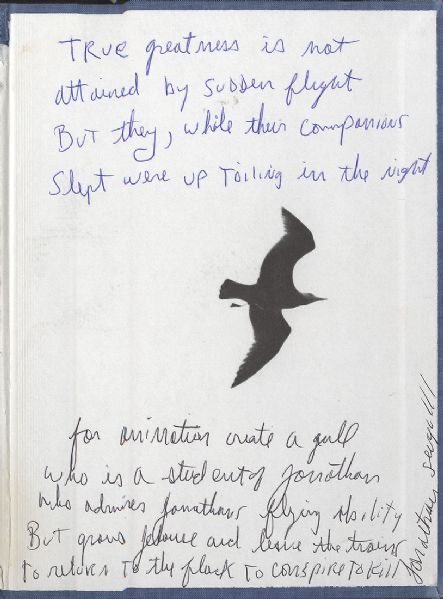 TRUE greatness is not
attained by sudden flight
But they, while their companions
Slept were up Toiling in the night
for animation create a gull
who is a student of Jonathan
who admires Jonathans flying ability
But grows jelouse and leave the trains
to return to the flock to conspire to kill
Jonathan seagull!!